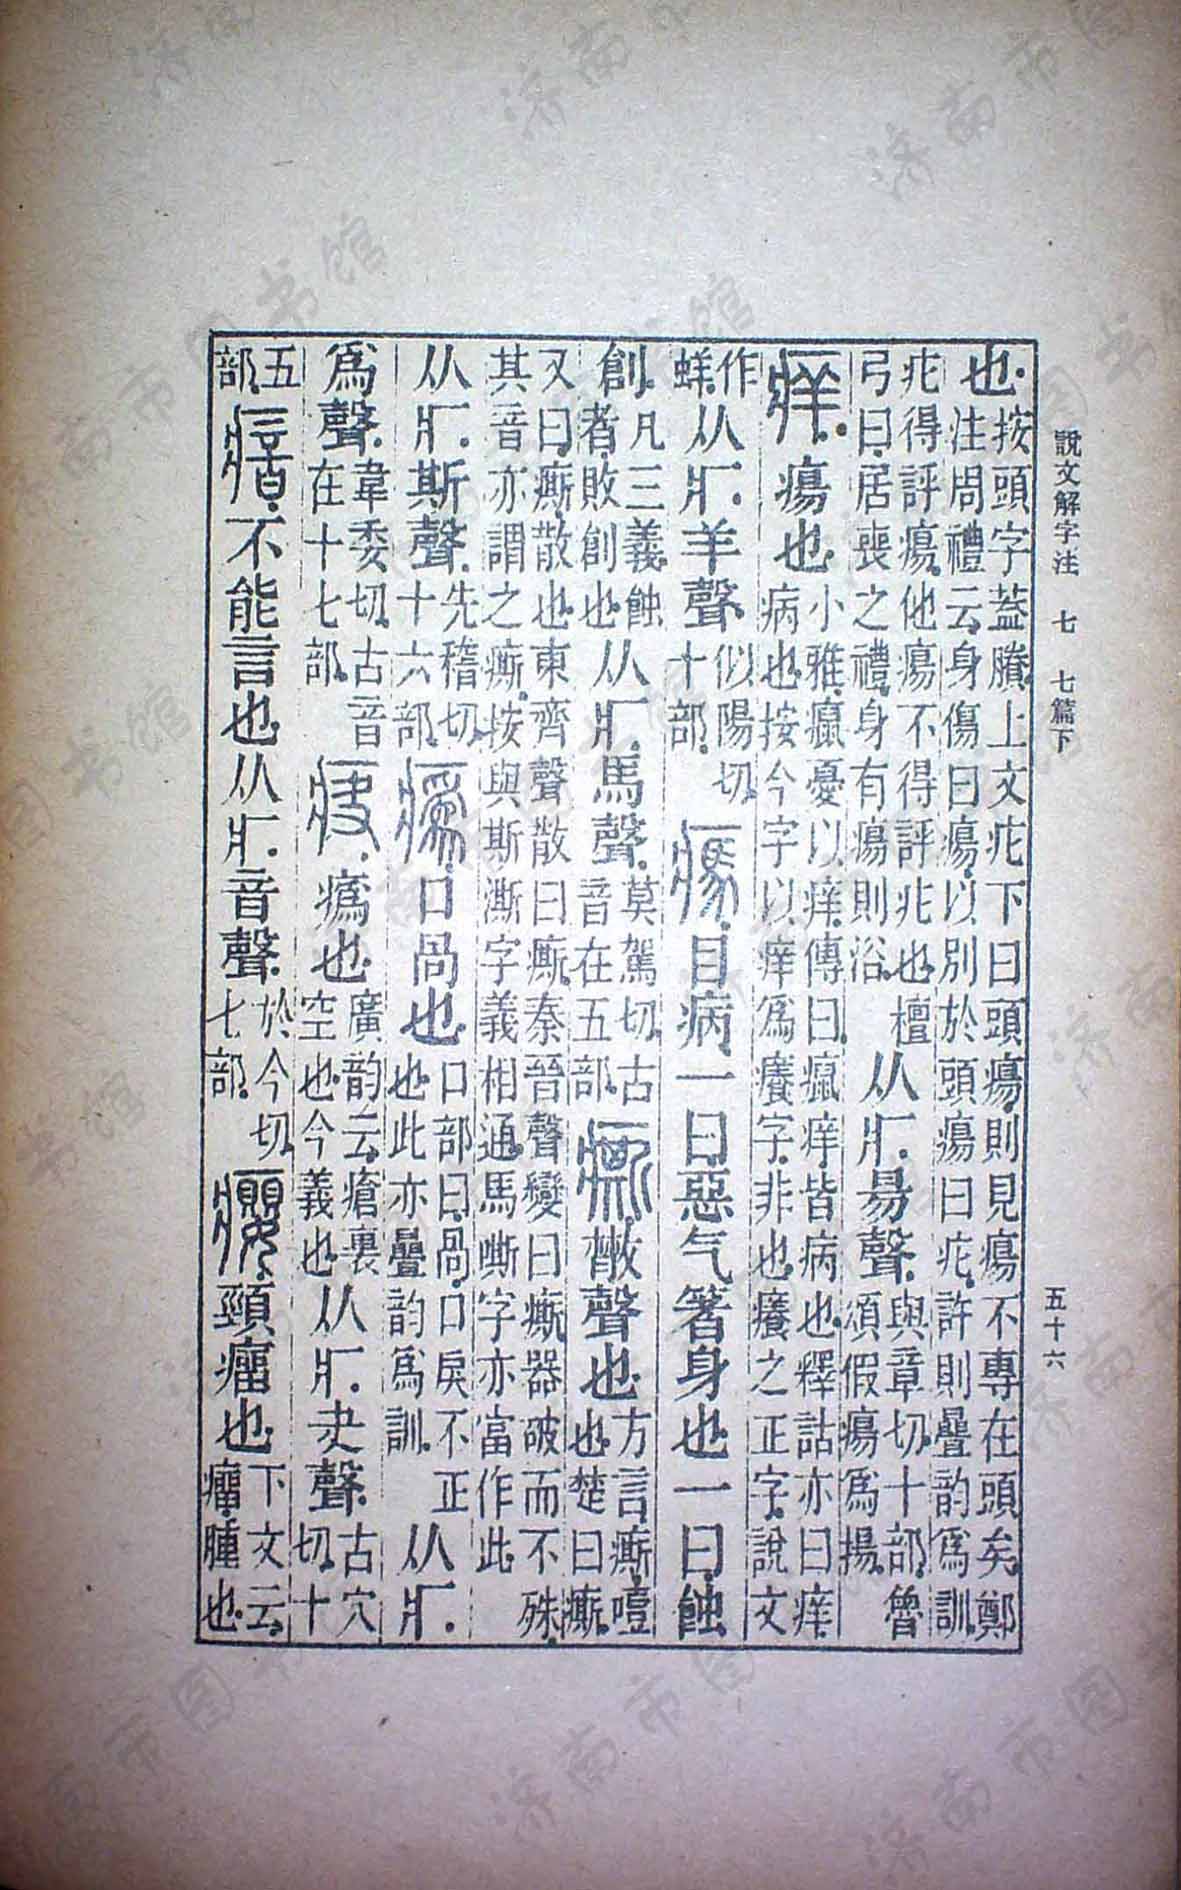 說文解字注 七 七篇下 五十六
也。按頭字葢賸。上文疕下曰頭瘍。則見瘍不專在頭矣。鄭注周禮云。身傷曰瘍。以別於頭瘍曰疕。許則疊韵爲訓。
疕得評瘍。他瘍不得評疕也。檀弓曰。居喪之禮。身有瘍則浴。从疒。昜聲。與章切。十部。魯頌假瘍爲揚。
痒。瘍也。小雅。癙憂以痒。傳曰。癙痒皆病也。釋詁亦曰痒。病也。按今字以痒爲癢字。非也。癢之正字。說文
作蛘。从疒。羊聲。似陽切。十部。𤸱。目病。一曰惡气箸身也。一曰蝕
創。凡三義。蝕者。敗創也。从疒。馬聲。莫駕切。古音在五部。㾷。散聲也。方言。㾷噎也。楚曰㾷。
又曰。㾷散也。東齊聲散曰㾷。秦晉聲變曰㾷。器破而不殊。其音亦謂之㾷。按與斯澌字義相通。馬嘶字亦當作此。
从疒。斯聲。先稽切。十六部。㾻。口咼也。口部曰。咼。口戾不正也。此亦疊韵爲訓。从疒。
爲聲。韋委切。古音在十七部。疦。㾻也。廣韵云。瘡裏空也。今義也。从疒。夬聲。古穴切。十
五部。瘖。不能言也。从疒。音聲。於今切。七部。癭。頸瘤也。下文云。瘤。腫也。
济南市图书馆